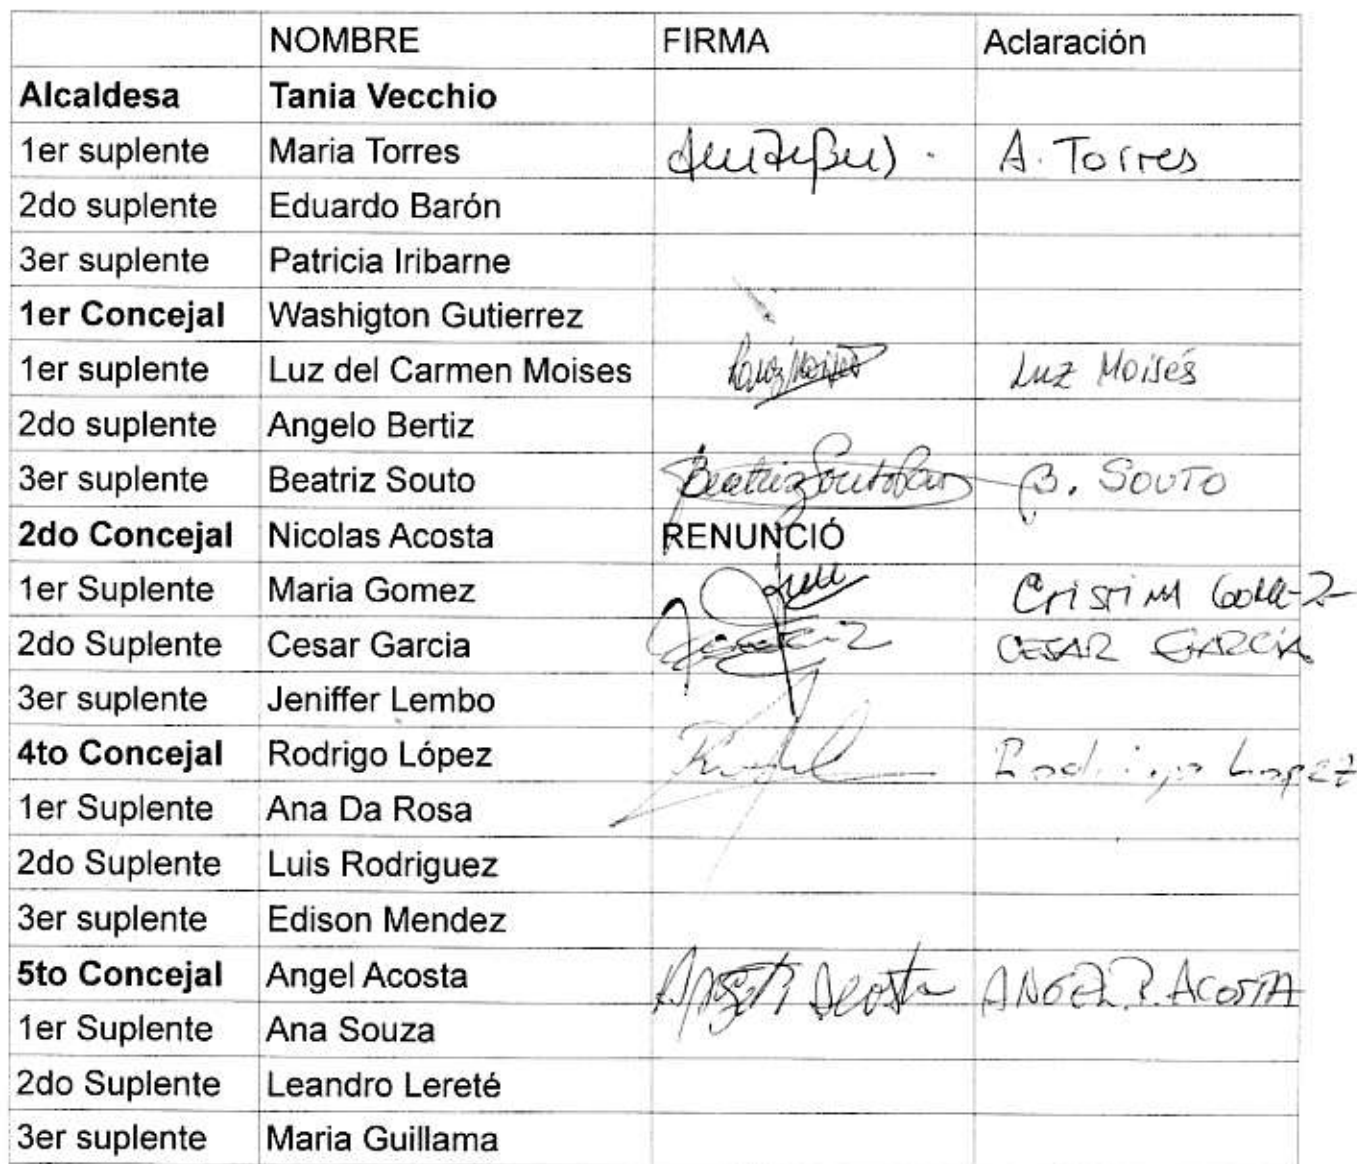 NOMBRE FIRMA Aclaración
Alcaldesa Tania Vecchio
1er suplente Maria Torres A. Torres
2do suplente Eduardo Barón
3er suplente Patricia Iribarne
1er Concejal Washigton Gutierrez
1er suplente Luz del Carmen Moises Luz Moisés
2do suplente Angelo Bertiz
3er suplente Beatriz Souto Beatriz Souto B. SOUTO
2do Concejal Nicolas Acosta RENUNCIÓ
1er Suplente Maria Gomez
2do Suplente Cesar Garcia CESAR GARCÍA
3er suplente Jeniffer Lembo
4to Concejal Rodrigo López Rodrigo Lopez
1er Suplente Ana Da Rosa
2do Suplente Luis Rodriguez
3er suplente Edison Mendez
5to Concejal Angel Acosta Acosta ANGEL P. ACOSTA
1er Suplente Ana Souza
2do Suplente Leandro Lereté
3er suplente Maria Guillama